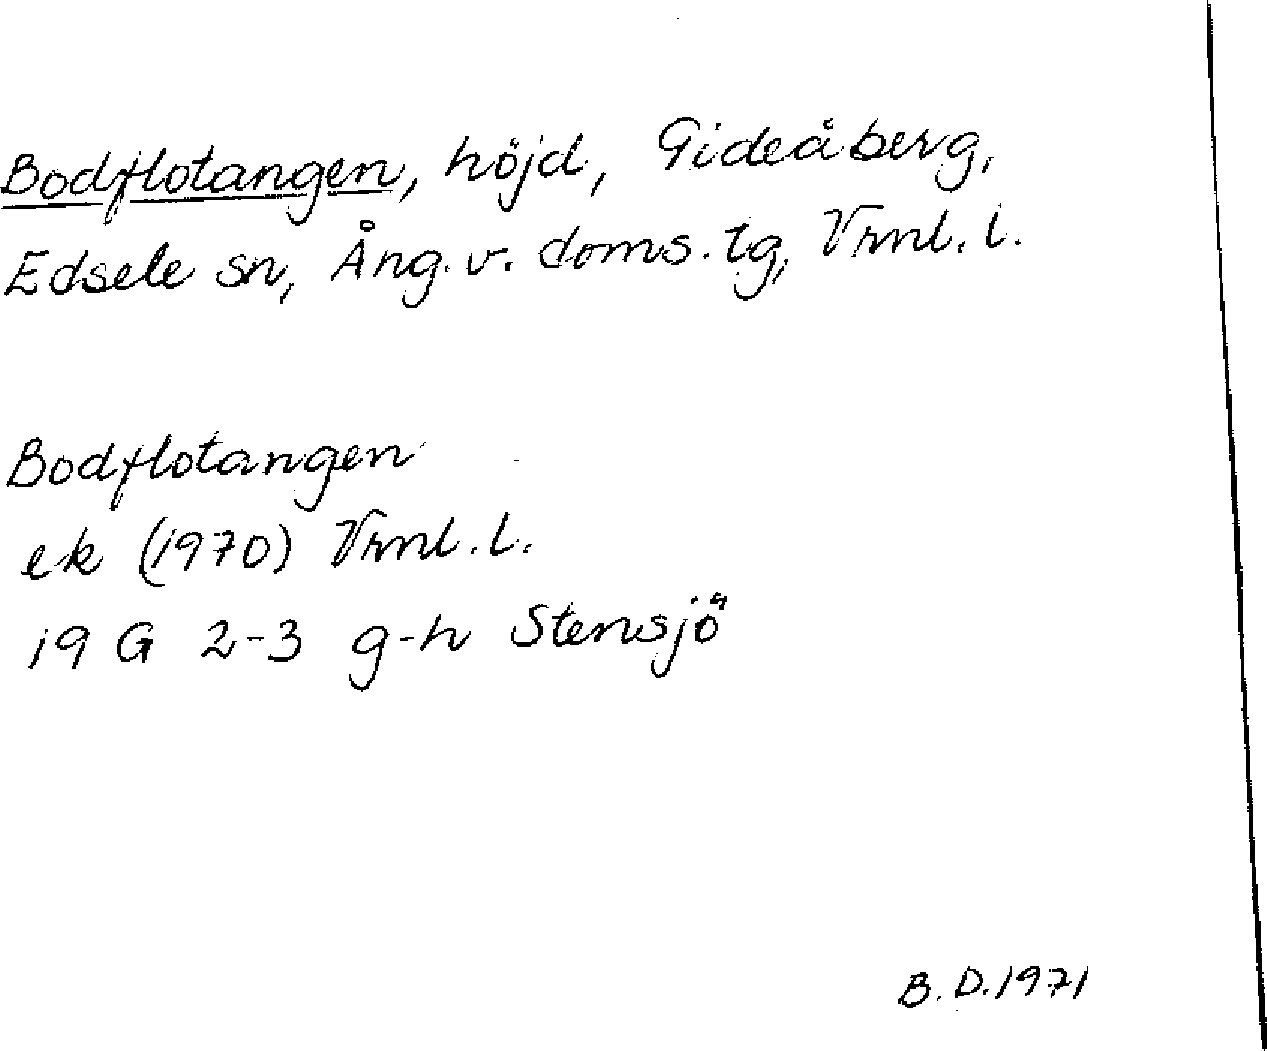 Bodflotangen, höjd, Gideåberg,
Edsele sn, Ång. v. doms. tg, Vrml. l.
Bodflotangen
ek (1970) Vrml. l.
19 G 2-3 g-h Stensjö
B. D. 1971